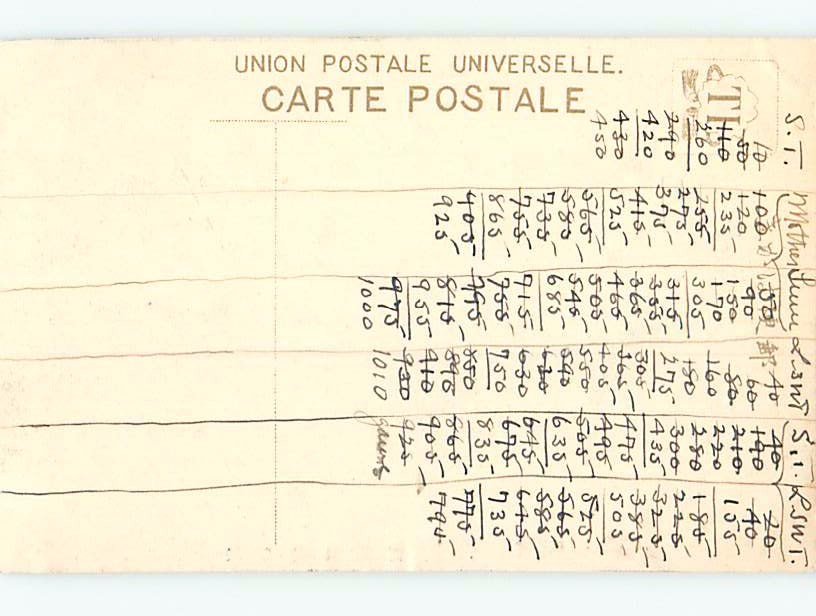 UNION POSTALE UNIVERSELLE.
CARTE POSTALE
TH
S. T.
10
50
110
260
290
420
430
450
Mother
100
120
235
255
275
375
415
525
565
580
735
755
865
905
925
50
90
150
170
305
315
355
365
465
505
545
685
715
755
795
815
955
975
1000
L. SWT
40
60
80
160
180
275
305
365
405
550
590
620
630
750
850
890
910
930
1010
game
S. T.
40
190
210
220
280
300
435
475
495
505
635
645
675
835
865
905
925
L. SWT.
20
40
155
185
225
325
385
505
525
565
585
645
735
775
795